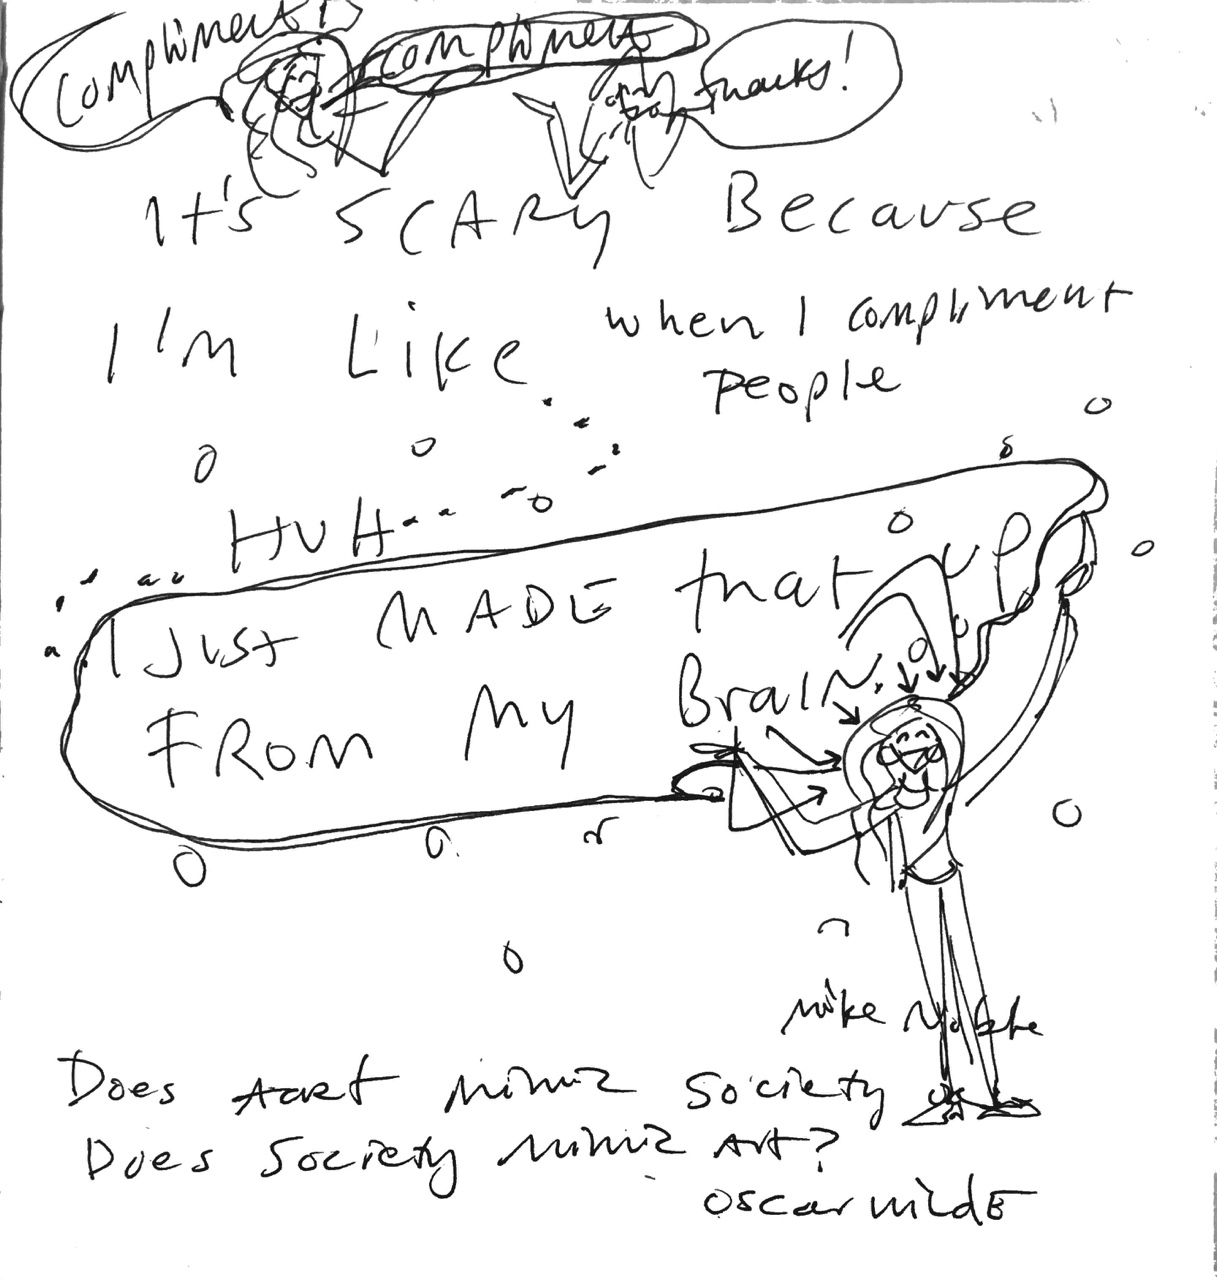 Compliments
compliment
thanks!
It's SCARY Because
I'm Like when I compliment
people
HUH...
I JUST MADE that UP
FROM MY Brain.
mike
Does art mimic Society
Does Society mimic Art?
Oscar wildE